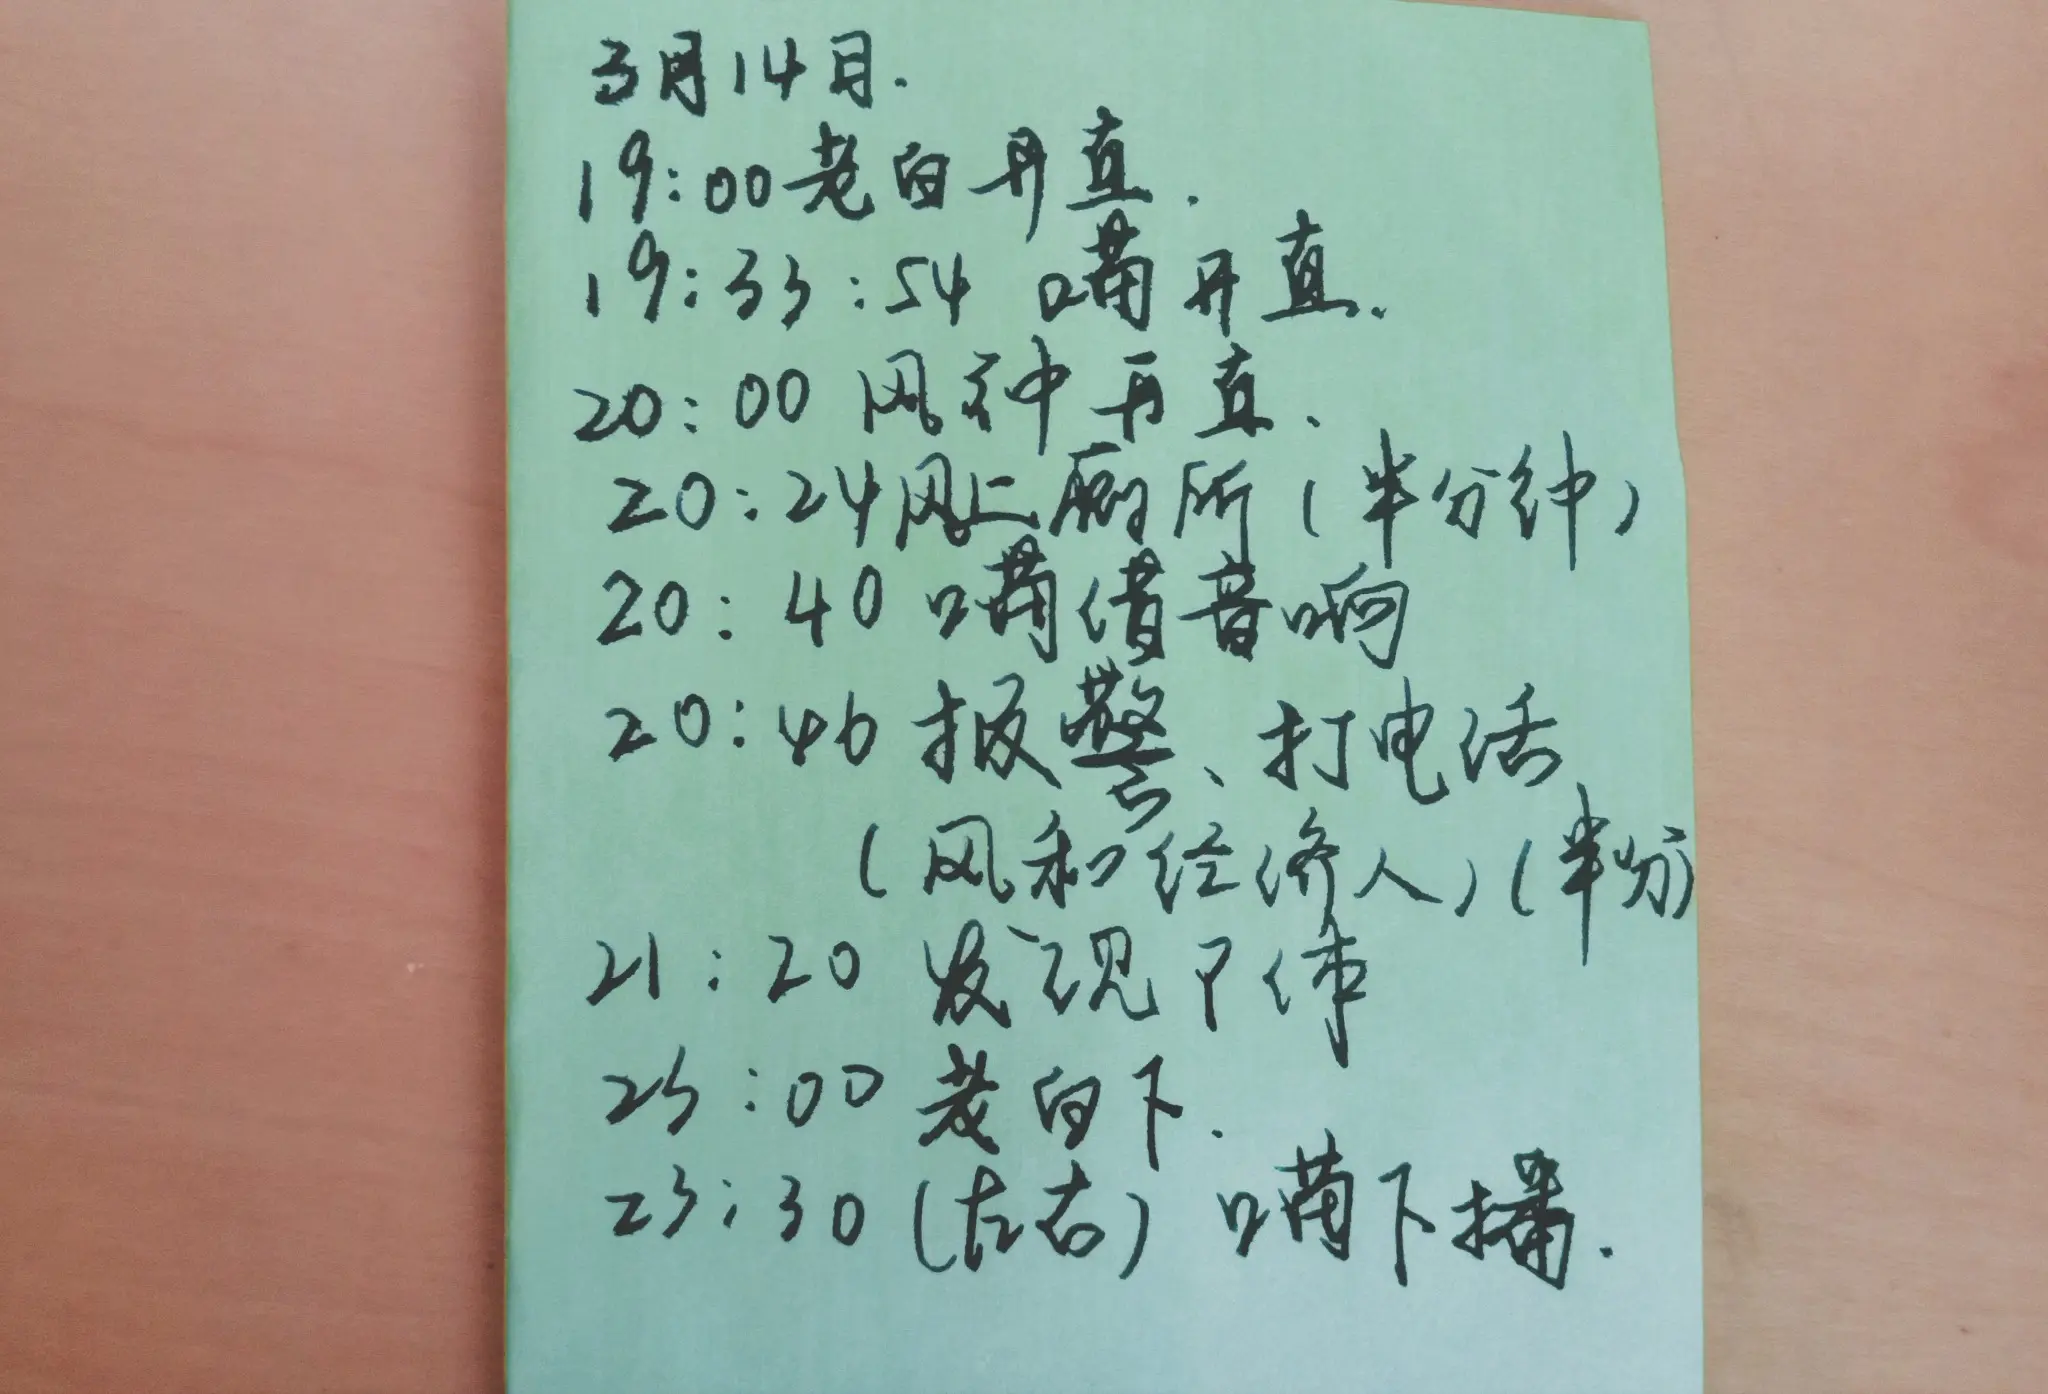 3月14日.
19:00老白开直.
19:33:54 喃开直.
20:00 风种开直.
20:24风上厕所(半分钟)
20:40 喃借音啊
20:46 报警、打电话
(风和经济人)(半分)
21:20 发现尸体
23:00 老白下.
23:30(左右) 喃下播.